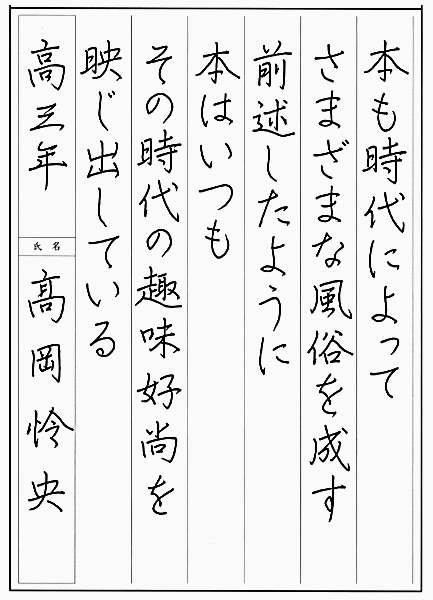 本も時代によって
さまざまな風俗を成す
前述したように
本はいつも
その時代の趣味好尚を
映じ出している
高三年
氏名
髙岡怜央